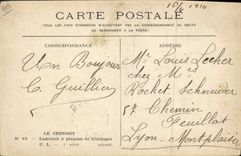 15/6 1914
CARTE POSTALE
TOUS LES PAYS ÉTRANGERS N'ACCEPTENT PAS LA CORRESPONDANCE AU RECTO
SE RENSEIGNER À LA POSTE
CORRESPONDANCE
ADRESSE
Un Bonjour
C. Guillien
Mr Louis Lecher
chez Mrs
Rochet Schneider
57 Chemin
Feuillat
Lyon-Montplaisir
LE CREUSOT
Laminoir à plaques de blindages
C L
1re série